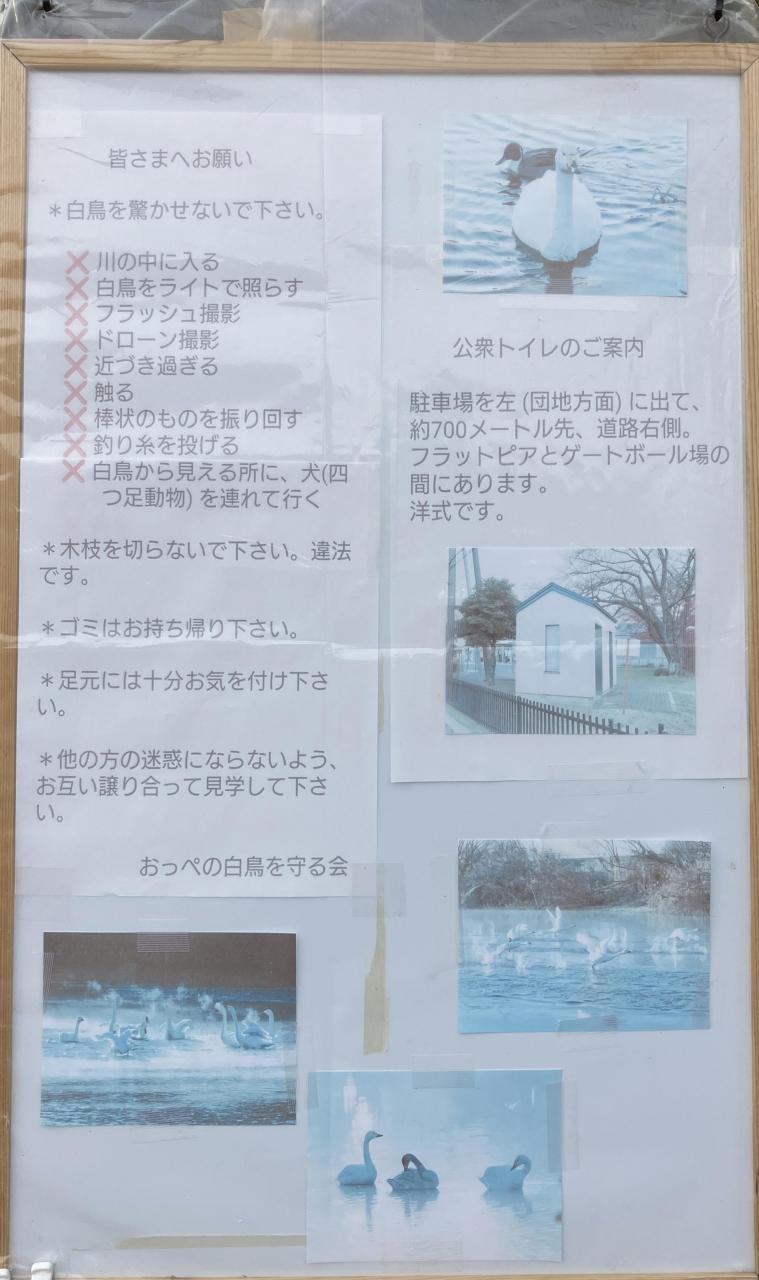 皆さまへお願い
＊白鳥を驚かせないで下さい。
❌川の中に入る
❌白鳥をライトで照らす
❌フラッシュ撮影
❌ドローン撮影
❌近づき過ぎる
❌触る
❌棒状のものを振り回す
❌釣り糸を投げる
❌白鳥から見える所に、犬(四
つ足動物) を連れて行く
＊木枝を切らないで下さい。違法
です。
＊ゴミはお持ち帰り下さい。
＊足元には十分お気を付け下さ
い。
＊他の方の迷惑にならないよう、
お互い譲り合って見学して下さ
い。
おっぺの白鳥を守る会
公衆トイレのご案内
駐車場を左 (団地方面) に出て、
約700メートル先、道路右側。
フラットピアとゲートボール場の
間にあります。
洋式です。